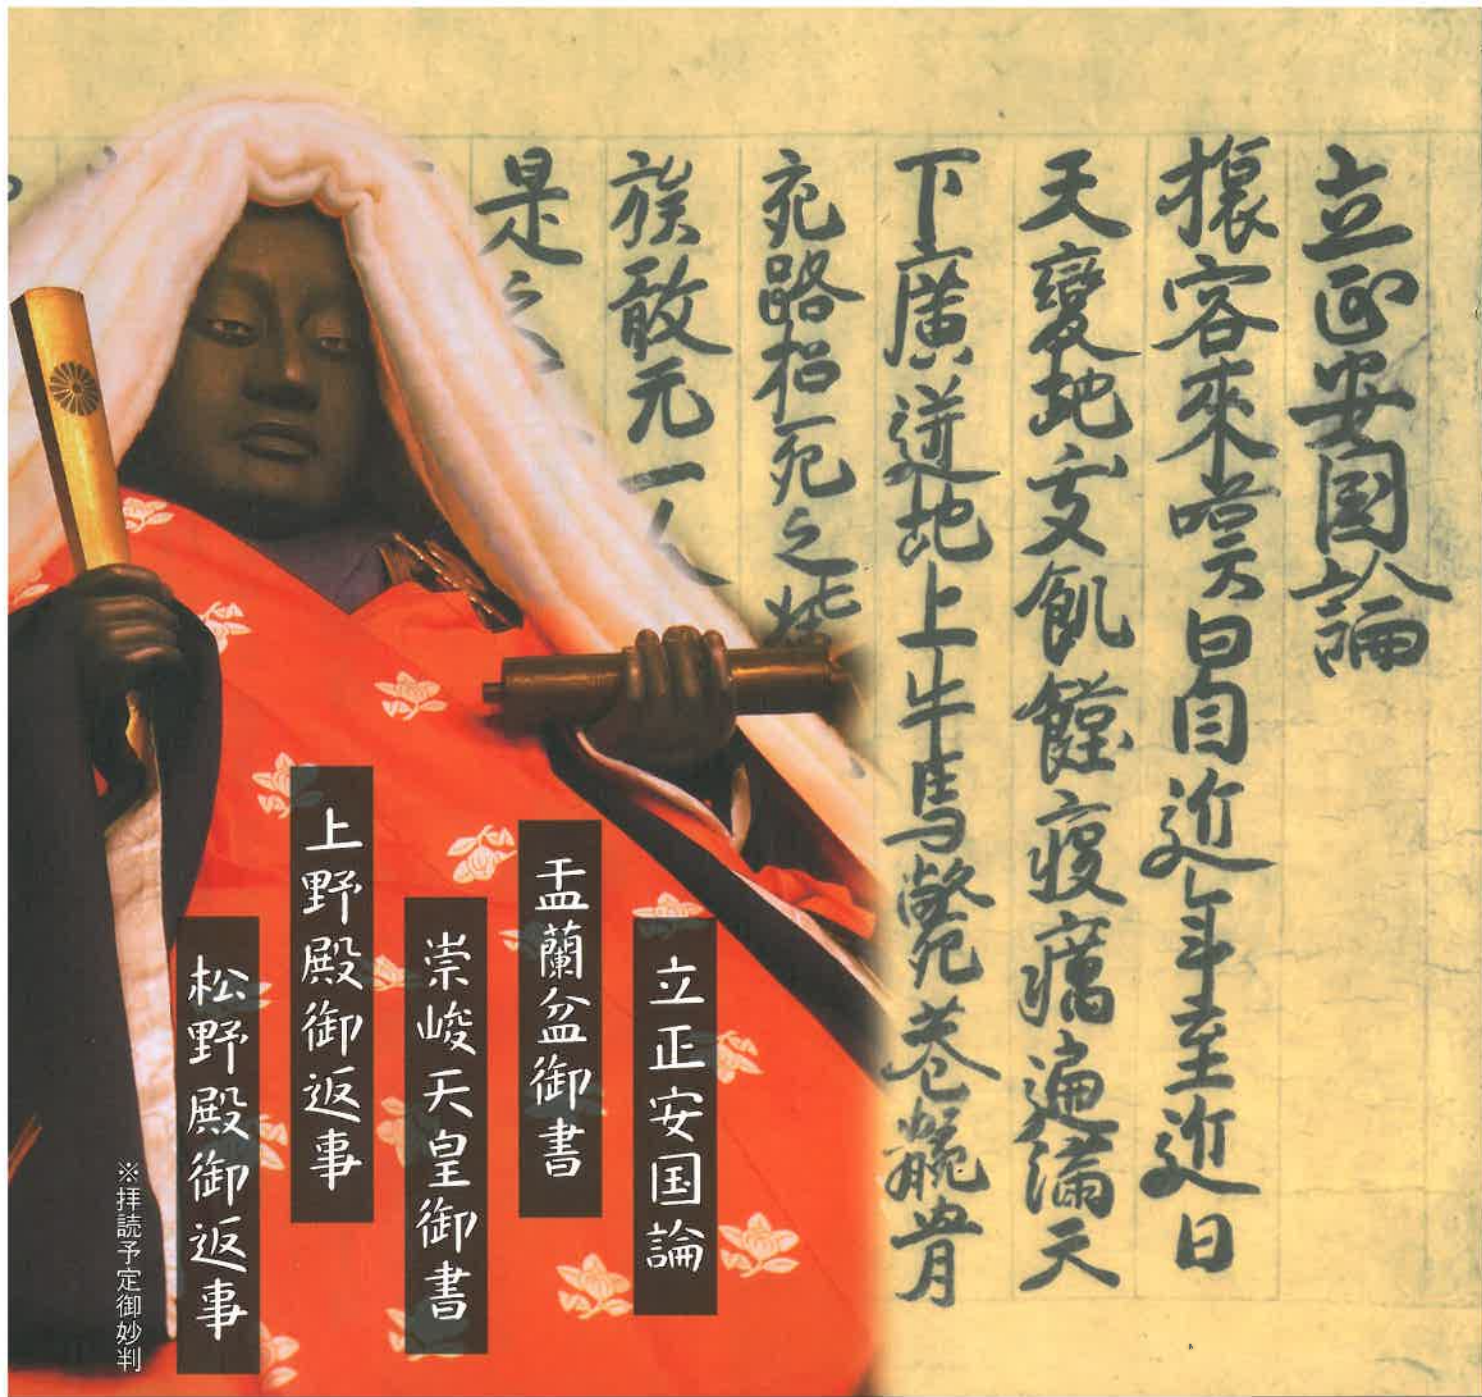 立正安国論
旅客來嘆曰自近年至近日
天變地夭飢饉疫癘遍滿天
下廣迸地上牛馬斃巷骸骨
充路招死之
族敢无一人
是之
立正安国論
盂蘭盆御書
崇峻天皇御書
上野殿御返事
松野殿御返事
※拝読予定御妙判